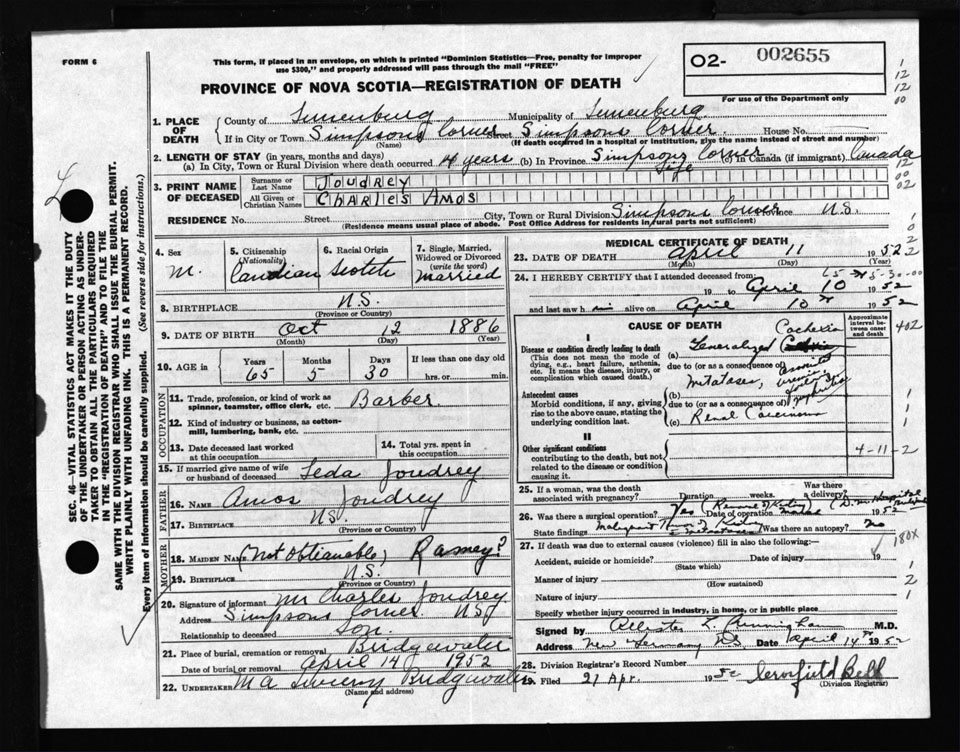 FORM 6
This form, if placed in an envelope, on which is printed "Dominion Statistics—Free, penalty for improper
use $300," and properly addressed will pass through the mail "FREE"
O2- 002655
For use of the Department only
PROVINCE OF NOVA SCOTIA—REGISTRATION OF DEATH
1. PLACE OF DEATH
County of Lunenburg Municipality of Lunenburg
If in City or Town Simpsons Corner Street Simpsons Corner House No.
(Name) (If death occurred in a hospital or institution, give the name instead of street and number)
2. LENGTH OF STAY (in years, months and days)
(a) In City, Town or Rural Division where death occurred 14 years (b) In Province Simpsons Corner (c) In Canada (if immigrant) Canada
life
3. PRINT NAME OF DECEASED
Surname or Last Name JOUDREY
All Given or Christian Names CHARLES AMOS
RESIDENCE No. Street City, Town or Rural Division Simpsons Corner Province N.S.
(Residence means usual place of abode. Post Office Address for rural parts not sufficient)
4. Sex M.
5. Citizenship (Nationality) Canadian
6. Racial Origin Scotch
7. Single, Married, Widowed or Divorced (write the word) Married
8. BIRTHPLACE N.S.
(Province or Country)
9. DATE OF BIRTH Oct 12 1886
(Month) (Day) (Year)
10. AGE in Years 65 Months 5 Days 30 If less than one day old hrs. or min.
OCCUPATION
11. Trade, profession, or kind of work as spinner, teamster, office clerk, etc. Barber
12. Kind of industry or business, as cotton-mill, lumbering, bank, etc.
13. Date deceased last worked at this occupation
14. Total yrs. spent in this occupation
15. If married give name of wife or husband of deceased Leda Joudrey
FATHER
16. NAME Amos Joudrey
17. BIRTHPLACE N.S.
(Province or Country)
MOTHER
18. MAIDEN NAME (Not Obtianable) Ramey?
19. BIRTHPLACE N.S.
(Province or Country)
20. Signature of informant Mr Charles Joudrey
Address Simpsons Corner N.S.
Relationship to deceased Son.
21. Place of burial, cremation or removal Bridgewater
Date of burial or removal April 14 1952
22. UNDERTAKER Bridgewater
(Name and address)
MEDICAL CERTIFICATE OF DEATH
23. DATE OF DEATH April 11 1952
(Month) (Day) (Year)
24. I HEREBY CERTIFY that I attended deceased from:
19 to April 10 1952
and last saw him alive on April 10 1952
CAUSE OF DEATH
Approximate interval between onset and death
I
Disease or condition directly leading to death
(This does not mean the mode of dying, e.g., heart failure, asthenia, etc. It means the disease, injury, or complication which caused death.)
(a) Generalized Cachexia
due to (or as a consequence of)
Antecedent causes
Morbid conditions, if any, giving rise to the above cause, stating the underlying condition last.
(b)
due to (or as a consequence of)
(c) Renal Carcinoma
II
Other significant conditions
contributing to the death, but not related to the disease or condition causing it.
402
4-11-2
25. If a woman, was the death associated with pregnancy? Duration weeks. Was there a delivery?
26. Was there a surgical operation? Yes Date of operation 1952
State findings Malignant Was there an autopsy? No
180X
27. If death was due to external causes (violence) fill in also the following:—
Accident, suicide or homicide? Date of injury 19
(State which)
Manner of injury
(How sustained)
Nature of injury
Specify whether injury occurred in industry, in home, or in public place
Signed by Cunningham M.D.
Address New Germany N.S. Date April 14th 1952
28. Division Registrar's Record Number
29. Filed 21 Apr. 1952 Bell
(Division Registrar)
SEC. 46—VITAL STATISTICS ACT MAKES IT THE DUTY
OF THE UNDERTAKER OR PERSON ACTING AS UNDER-
TAKER TO OBTAIN ALL THE PARTICULARS REQUIRED
IN THE "REGISTRATION OF DEATH" AND TO FILE THE
SAME WITH THE DIVISION REGISTRAR WHO SHALL ISSUE THE BURIAL PERMIT.
WRITE PLAINLY WITH UNFADING INK. THIS IS A PERMANENT RECORD.
Every item of information should be carefully supplied. (See reverse side for instructions.)